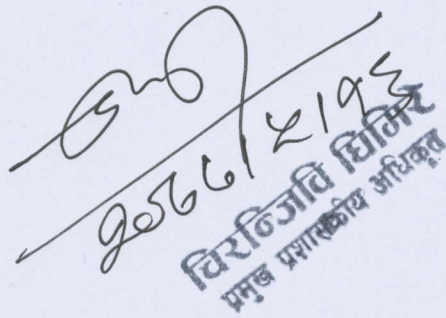 २०७७/५/१६
चिरञ्जिवि घिमिरे
प्रमुख प्रशासकीय अधिकृत